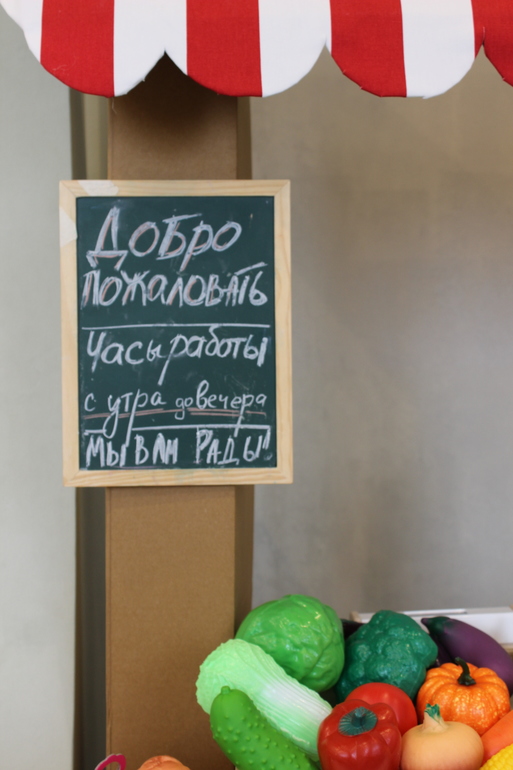 Добро
пожаловать
Часы работы
с утра до вечера
Мы вам рады